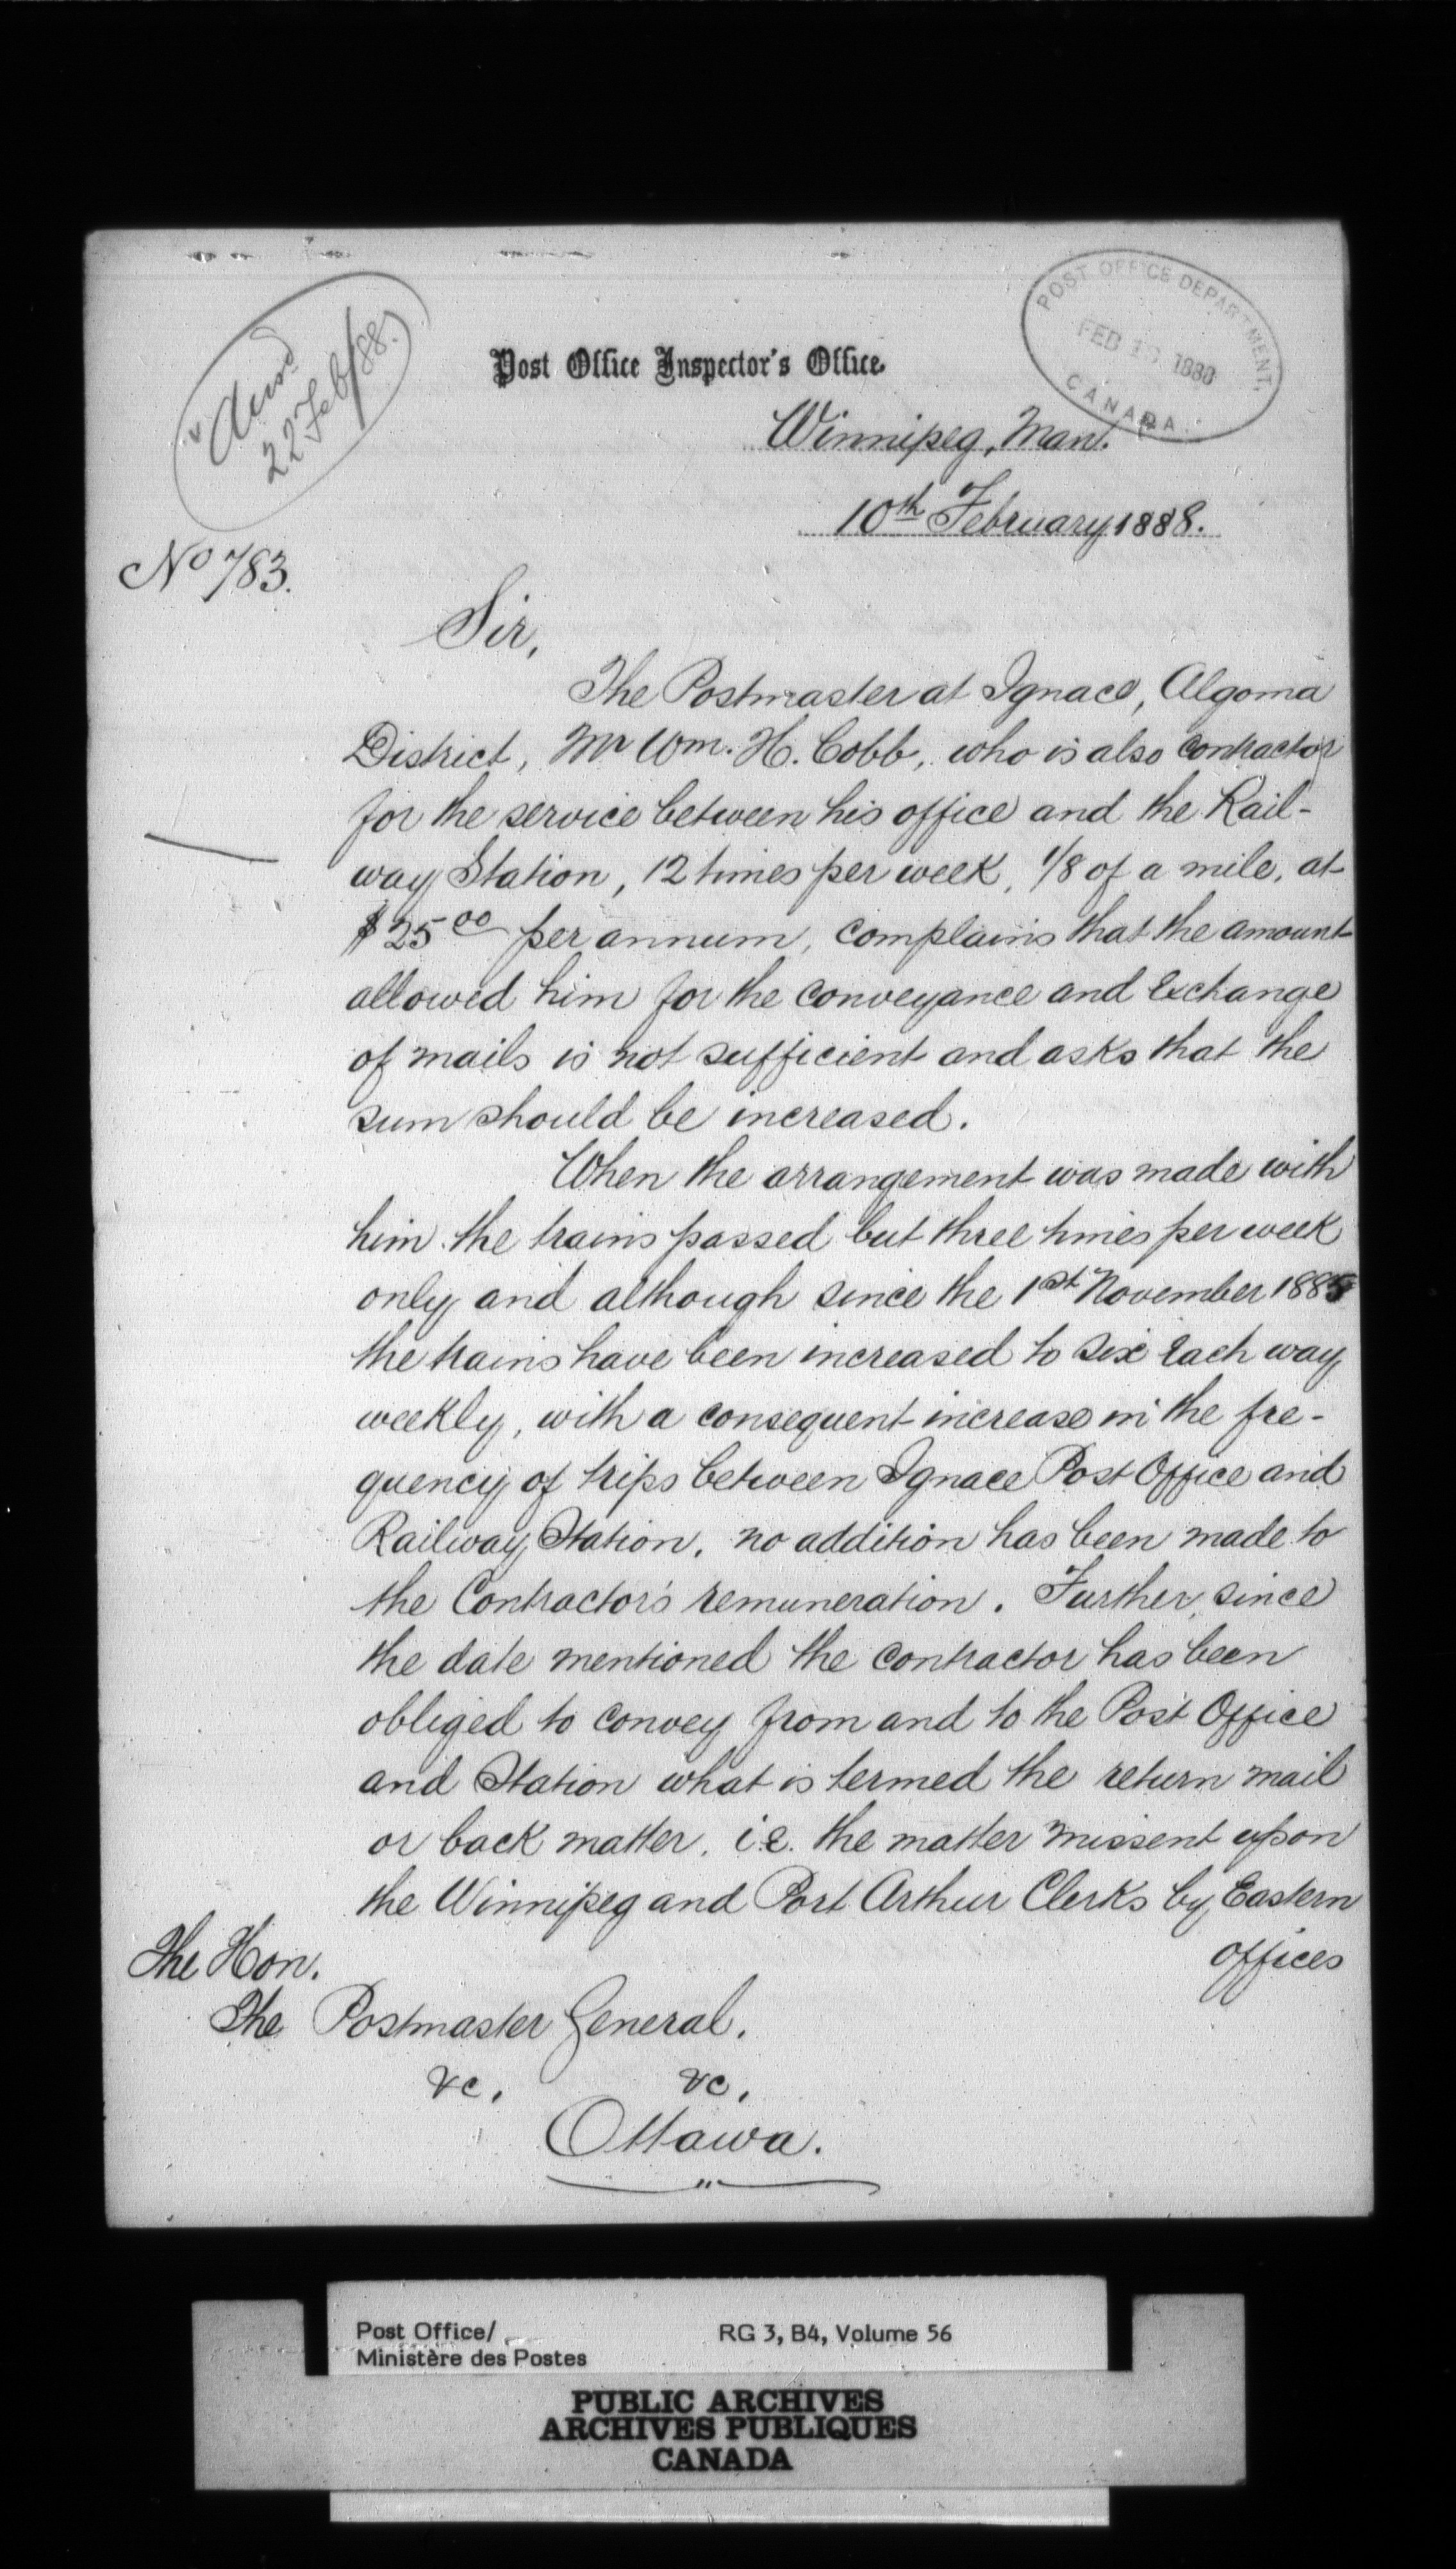 Answd
22 Feb/88.
POST OFFICE DEPARTMENT,
FEB 1 1888
CANADA.
Post Office Inspector's Office.
Winnipeg, Man.
10th February 1888.
No 783.
Sir,
The Postmaster at Ignace, Algoma
District, Mr Wm. H. Cobb, who is also contractor
for the service between his office and the Rail-
way Station, 12 times per week, 1/8 of a mile, at
$25 00 per annum, complains that the amount
allowed him for the conveyance and exchange
of mails is not sufficient and asks that the
sum should be increased.
When the arrangement was made with
him the trains passed but three times per week
only and although since the 1st November 1885
the trains have been increased to six each way
weekly, with a consequent increase in the fre-
quency of trips between Ignace Post Office and
Railway Station, no addition has been made to
the Contractor's remuneration. Further, since
the date mentioned the contractor has been
obliged to convey from and to the Post Office
and Station what is termed the return mail
or back matter, i.e. the matter missent upon
the Winnipeg and Port Arthur Clerks by Eastern
offices
The Hon.
The Postmaster General.
&c. &c.
Ottawa.
Post Office/ RG 3, B4, Volume 56
Ministère des Postes
PUBLIC ARCHIVES
ARCHIVES PUBLIQUES
CANADA